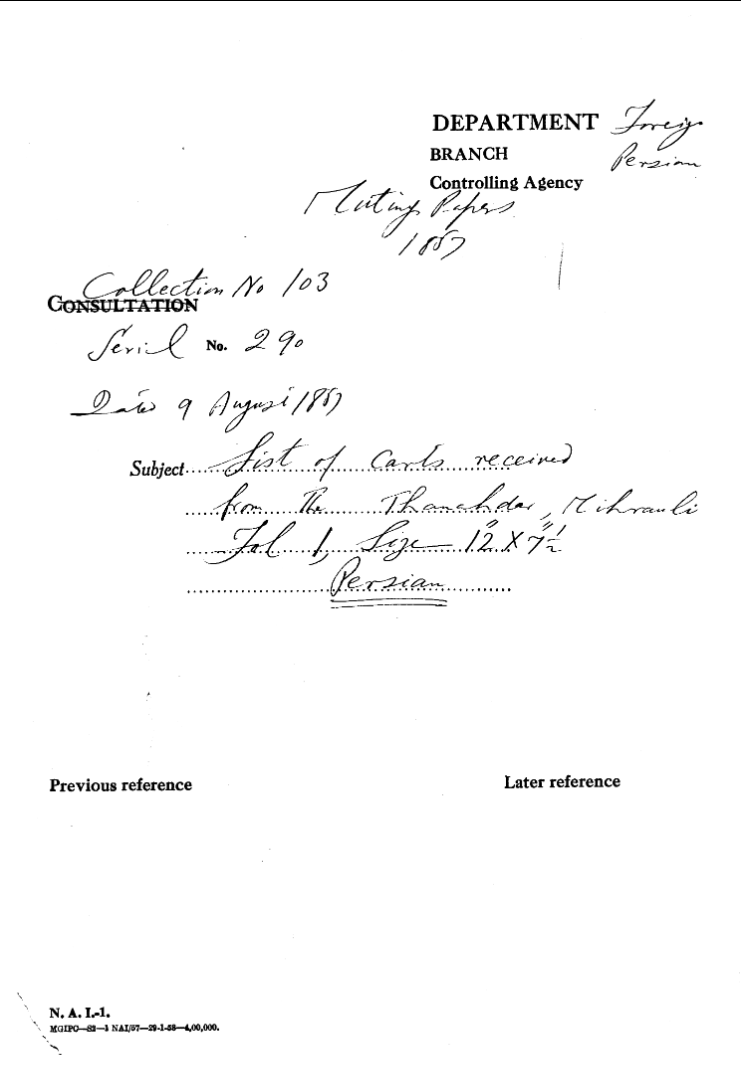 DEPARTMENT Foreign
BRANCH Persian
Controlling Agency
Mutiny Papers
1857
Collection No 103
CONSULTATION
Serial No. 290
Date 9 August 1857
Subject List of Carts received
from the Thanahdar, Mihrauli
Fol 1, Size 12" X 7"½
Persian
Previous reference Later reference
N. A. I.-1.
MGIPC—S2—3 NAI/57—29-1-58—4,00,000.